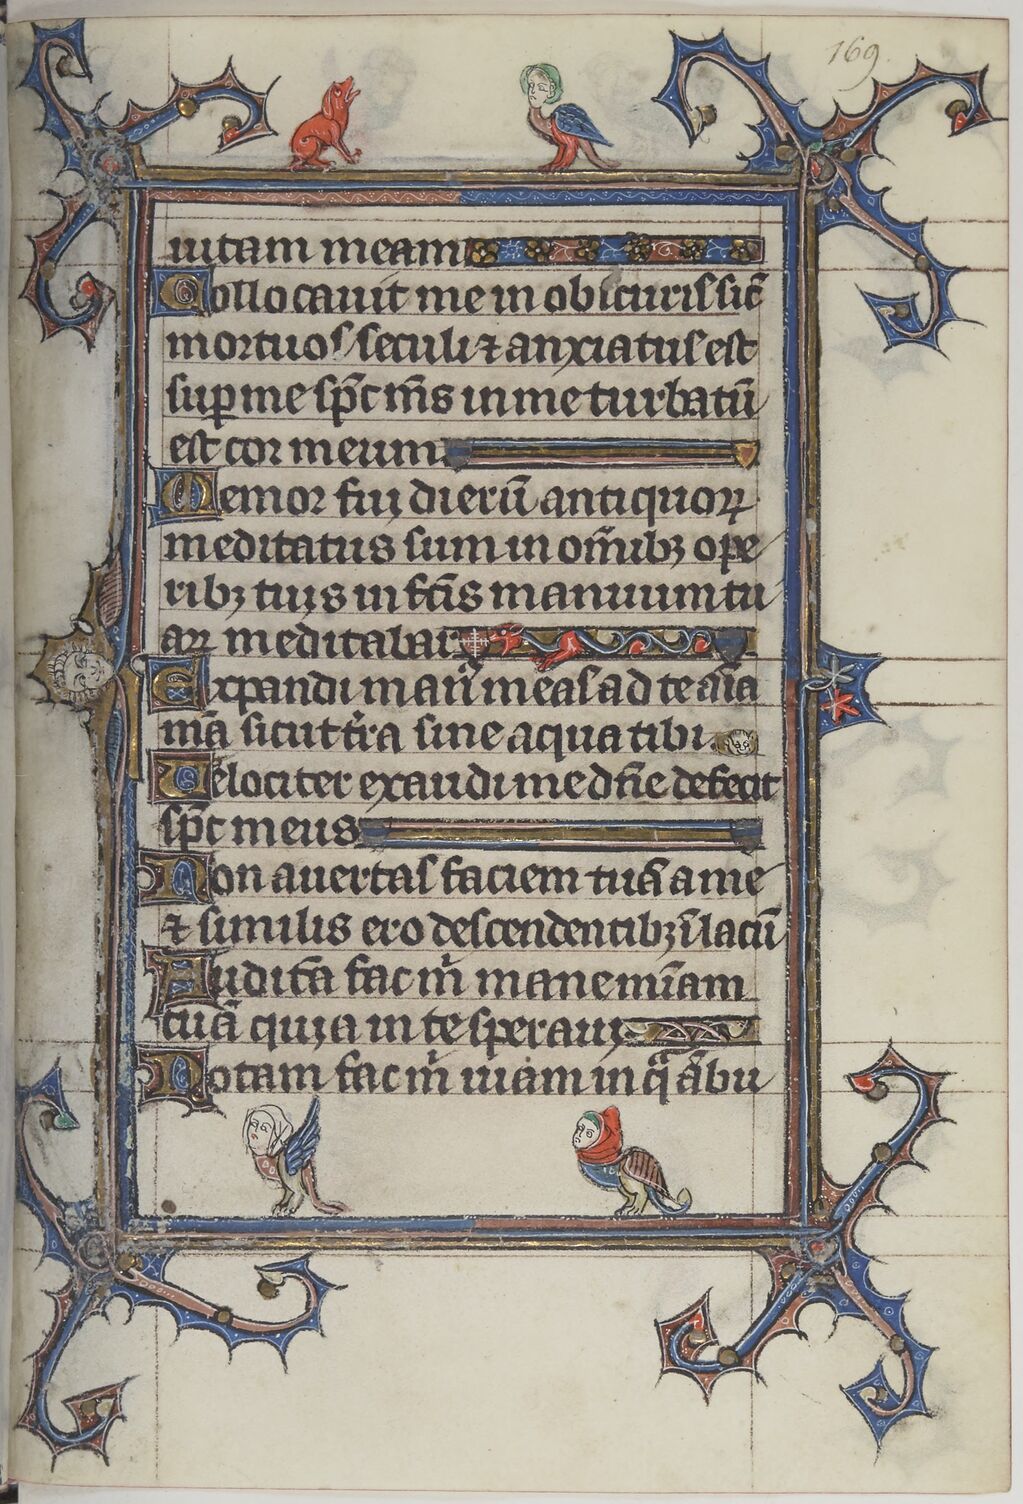 169.
uitam meam
Collocauit me in obscuris sic̄
mortuos seculi ⁊ anxiatus est
suꝑ me sp̄c m̄s in me turbatū
est cor meum
Memor fui dierū antiquoꝝ
meditatus sum in om̄ibꝫ ope
ribꝫ tuis in fc̄is manuum tu
aꝝ meditabar
Expandi man᷒ meas ad te aīa
m̄a sicut t̄ra sine aqua tibi.
Uelociter exaudi me dn̄e defecit
sp̄c meus
Non auertas faciem tuā a me
⁊ similis ero descendentibꝫ ī lacū
Auditā fac m̄ mane mīam
tuā quia in te speraui
Notam fac m̄ uiam in q̄ ābu